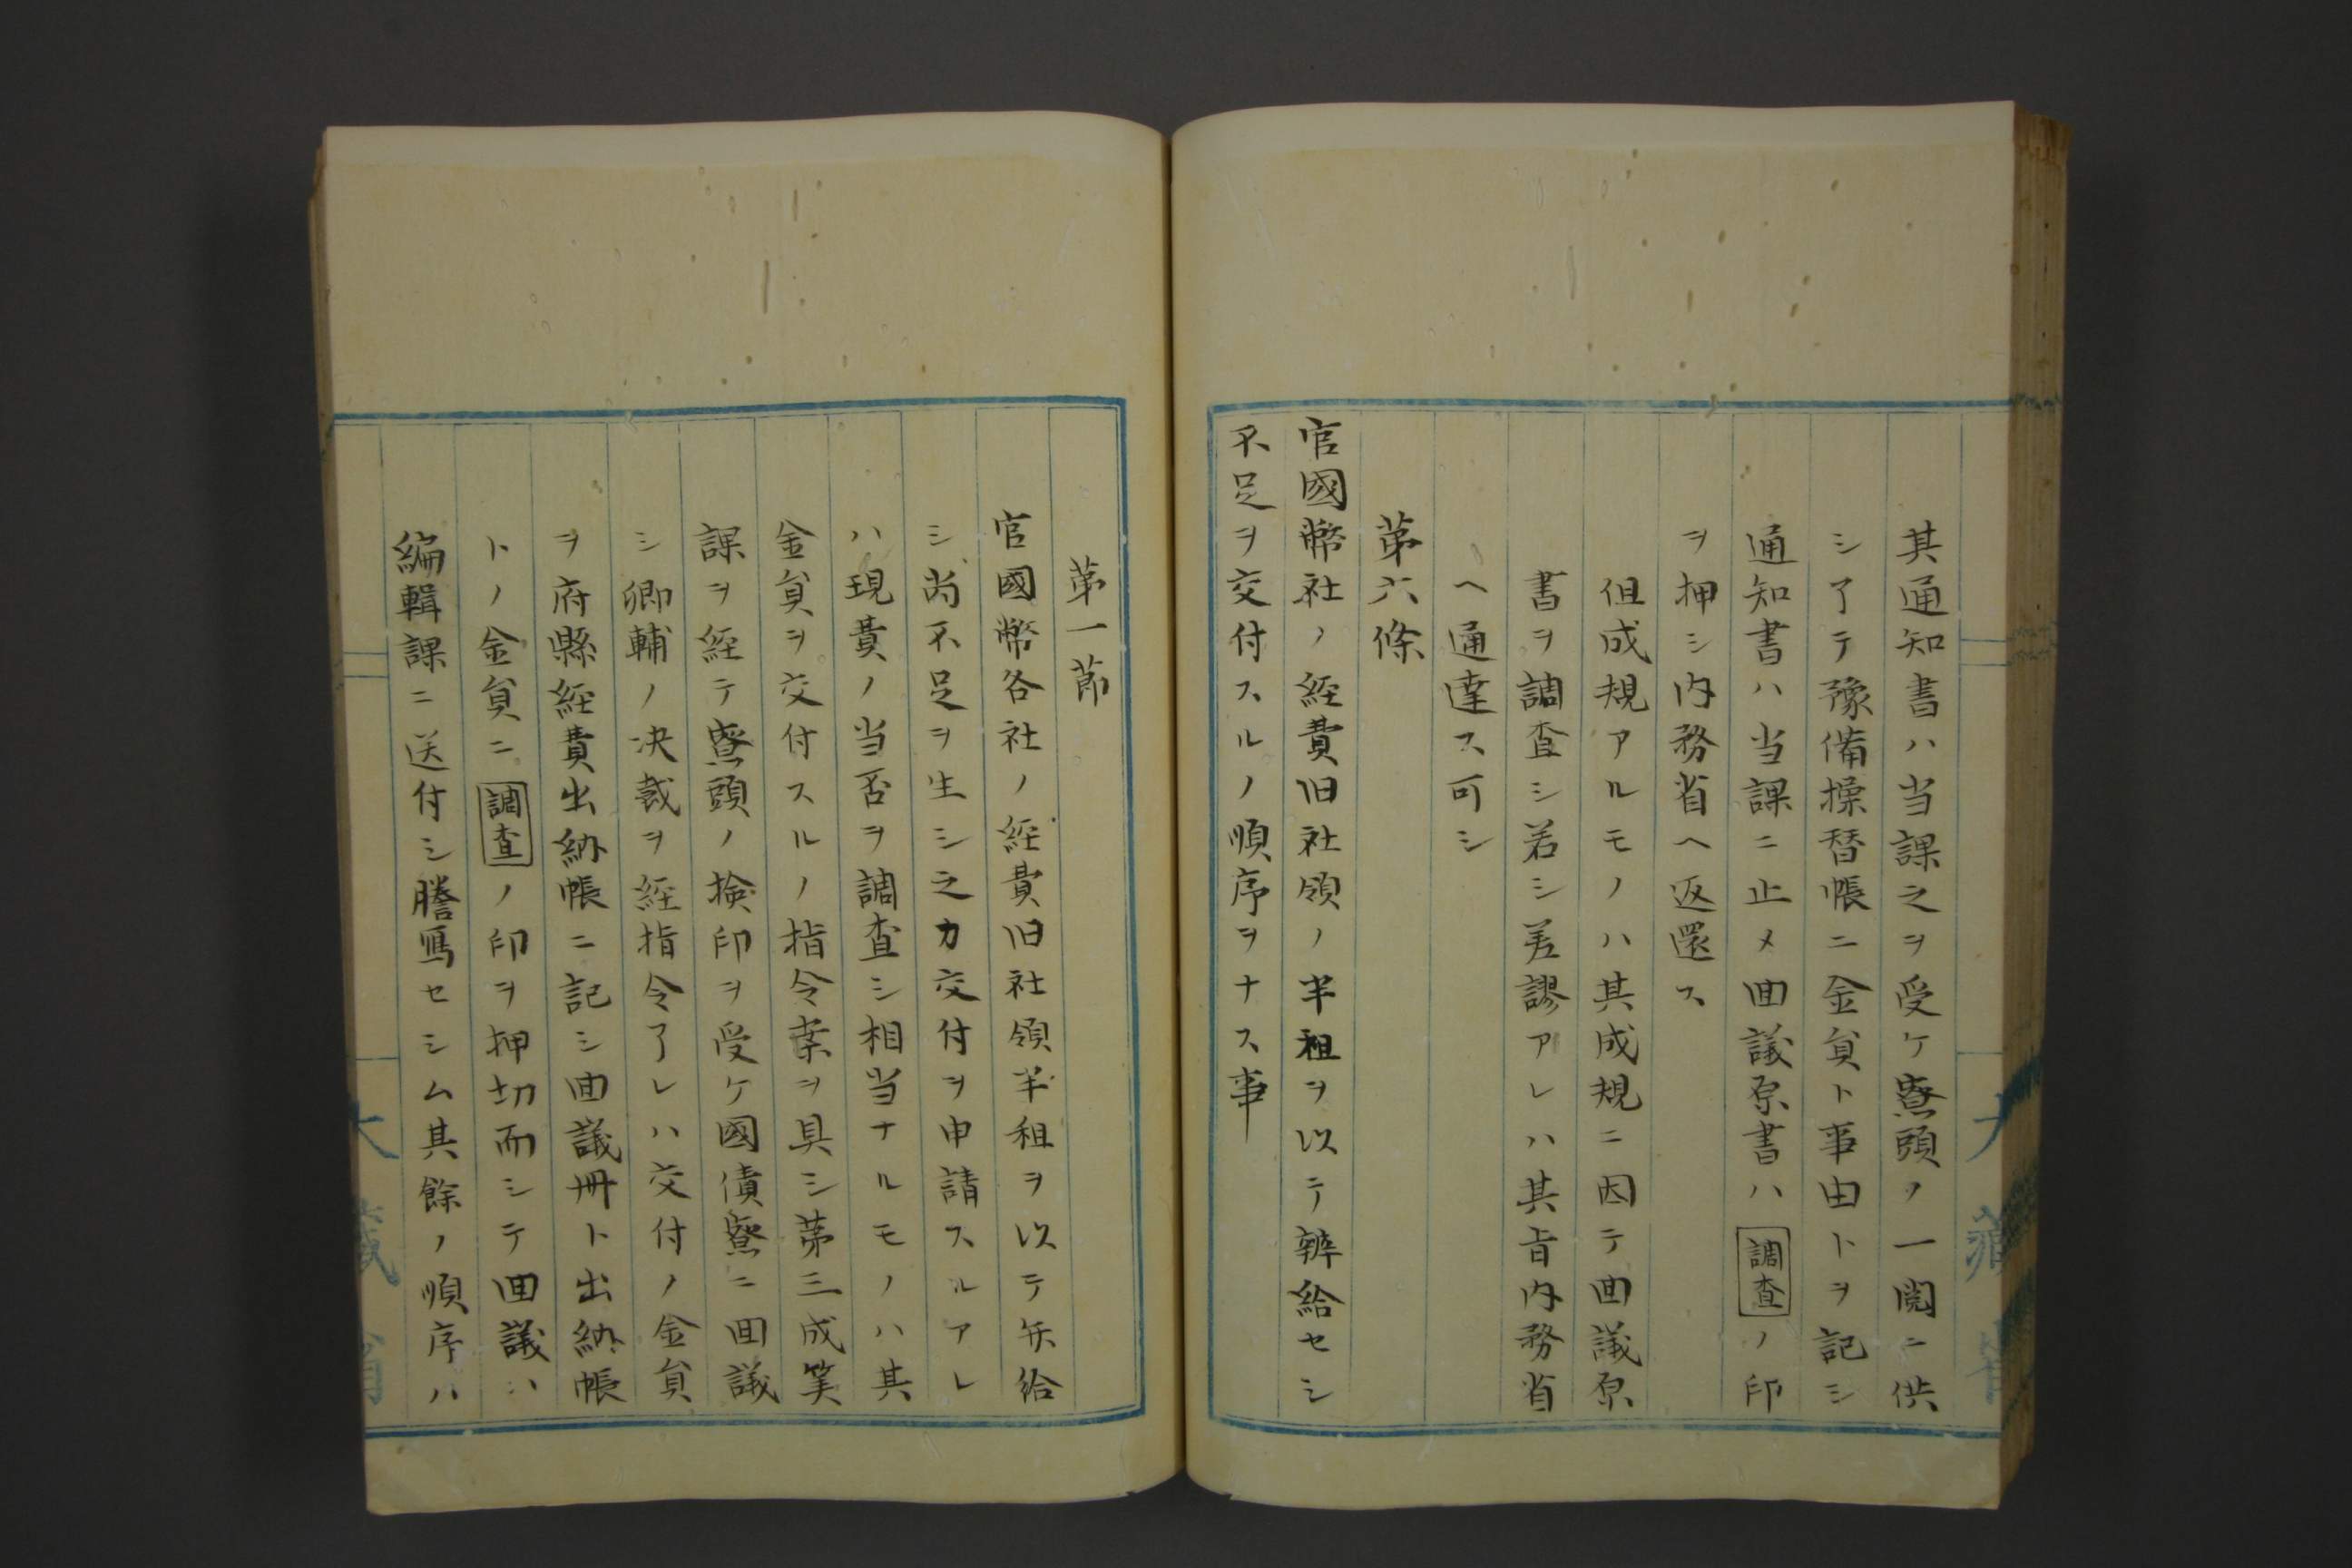 其通知書ハ当課之ヲ受ケ寮頭ノ一閲ニ供
シ了テ豫備操替帳ニ金員ト事由トヲ記シ
通知書ハ当課ニ止メ回議原書ハ調査ノ印
ヲ押シ内務省ヘ返還ス
但成規アルモノハ其成規ニ因テ回議原
書ヲ調査シ若シ差謬アレハ其旨内務省
ヘ通達ス可シ
第六條
官國幣社ノ経費旧社領ノ半租ヲ以テ辨給セシ
不足ヲ交付スルノ順序ヲナス事
第一節
官國幣各社ノ経費旧社領半租ヲ以テ弁給
シ尚不足ヲ生シ之カ交付ヲ申請スルアレ
ハ現費ノ当否ヲ調査シ相当ナルモノハ其
金員ヲ交付スルノ指令案ヲ具シ第三成筭
課ヲ経テ寮頭ノ検印ヲ受ケ國債寮ニ回議
シ卿輔ノ决裁ヲ経指令了レハ交付ノ金員
ヲ府縣経費出納帳ニ記シ回議冊ト出納帳
トノ金員ニ調査ノ印ヲ押切而シテ回議ハ
編輯課ニ送付シ謄寫セシム其餘ノ順序ハ
大藏省